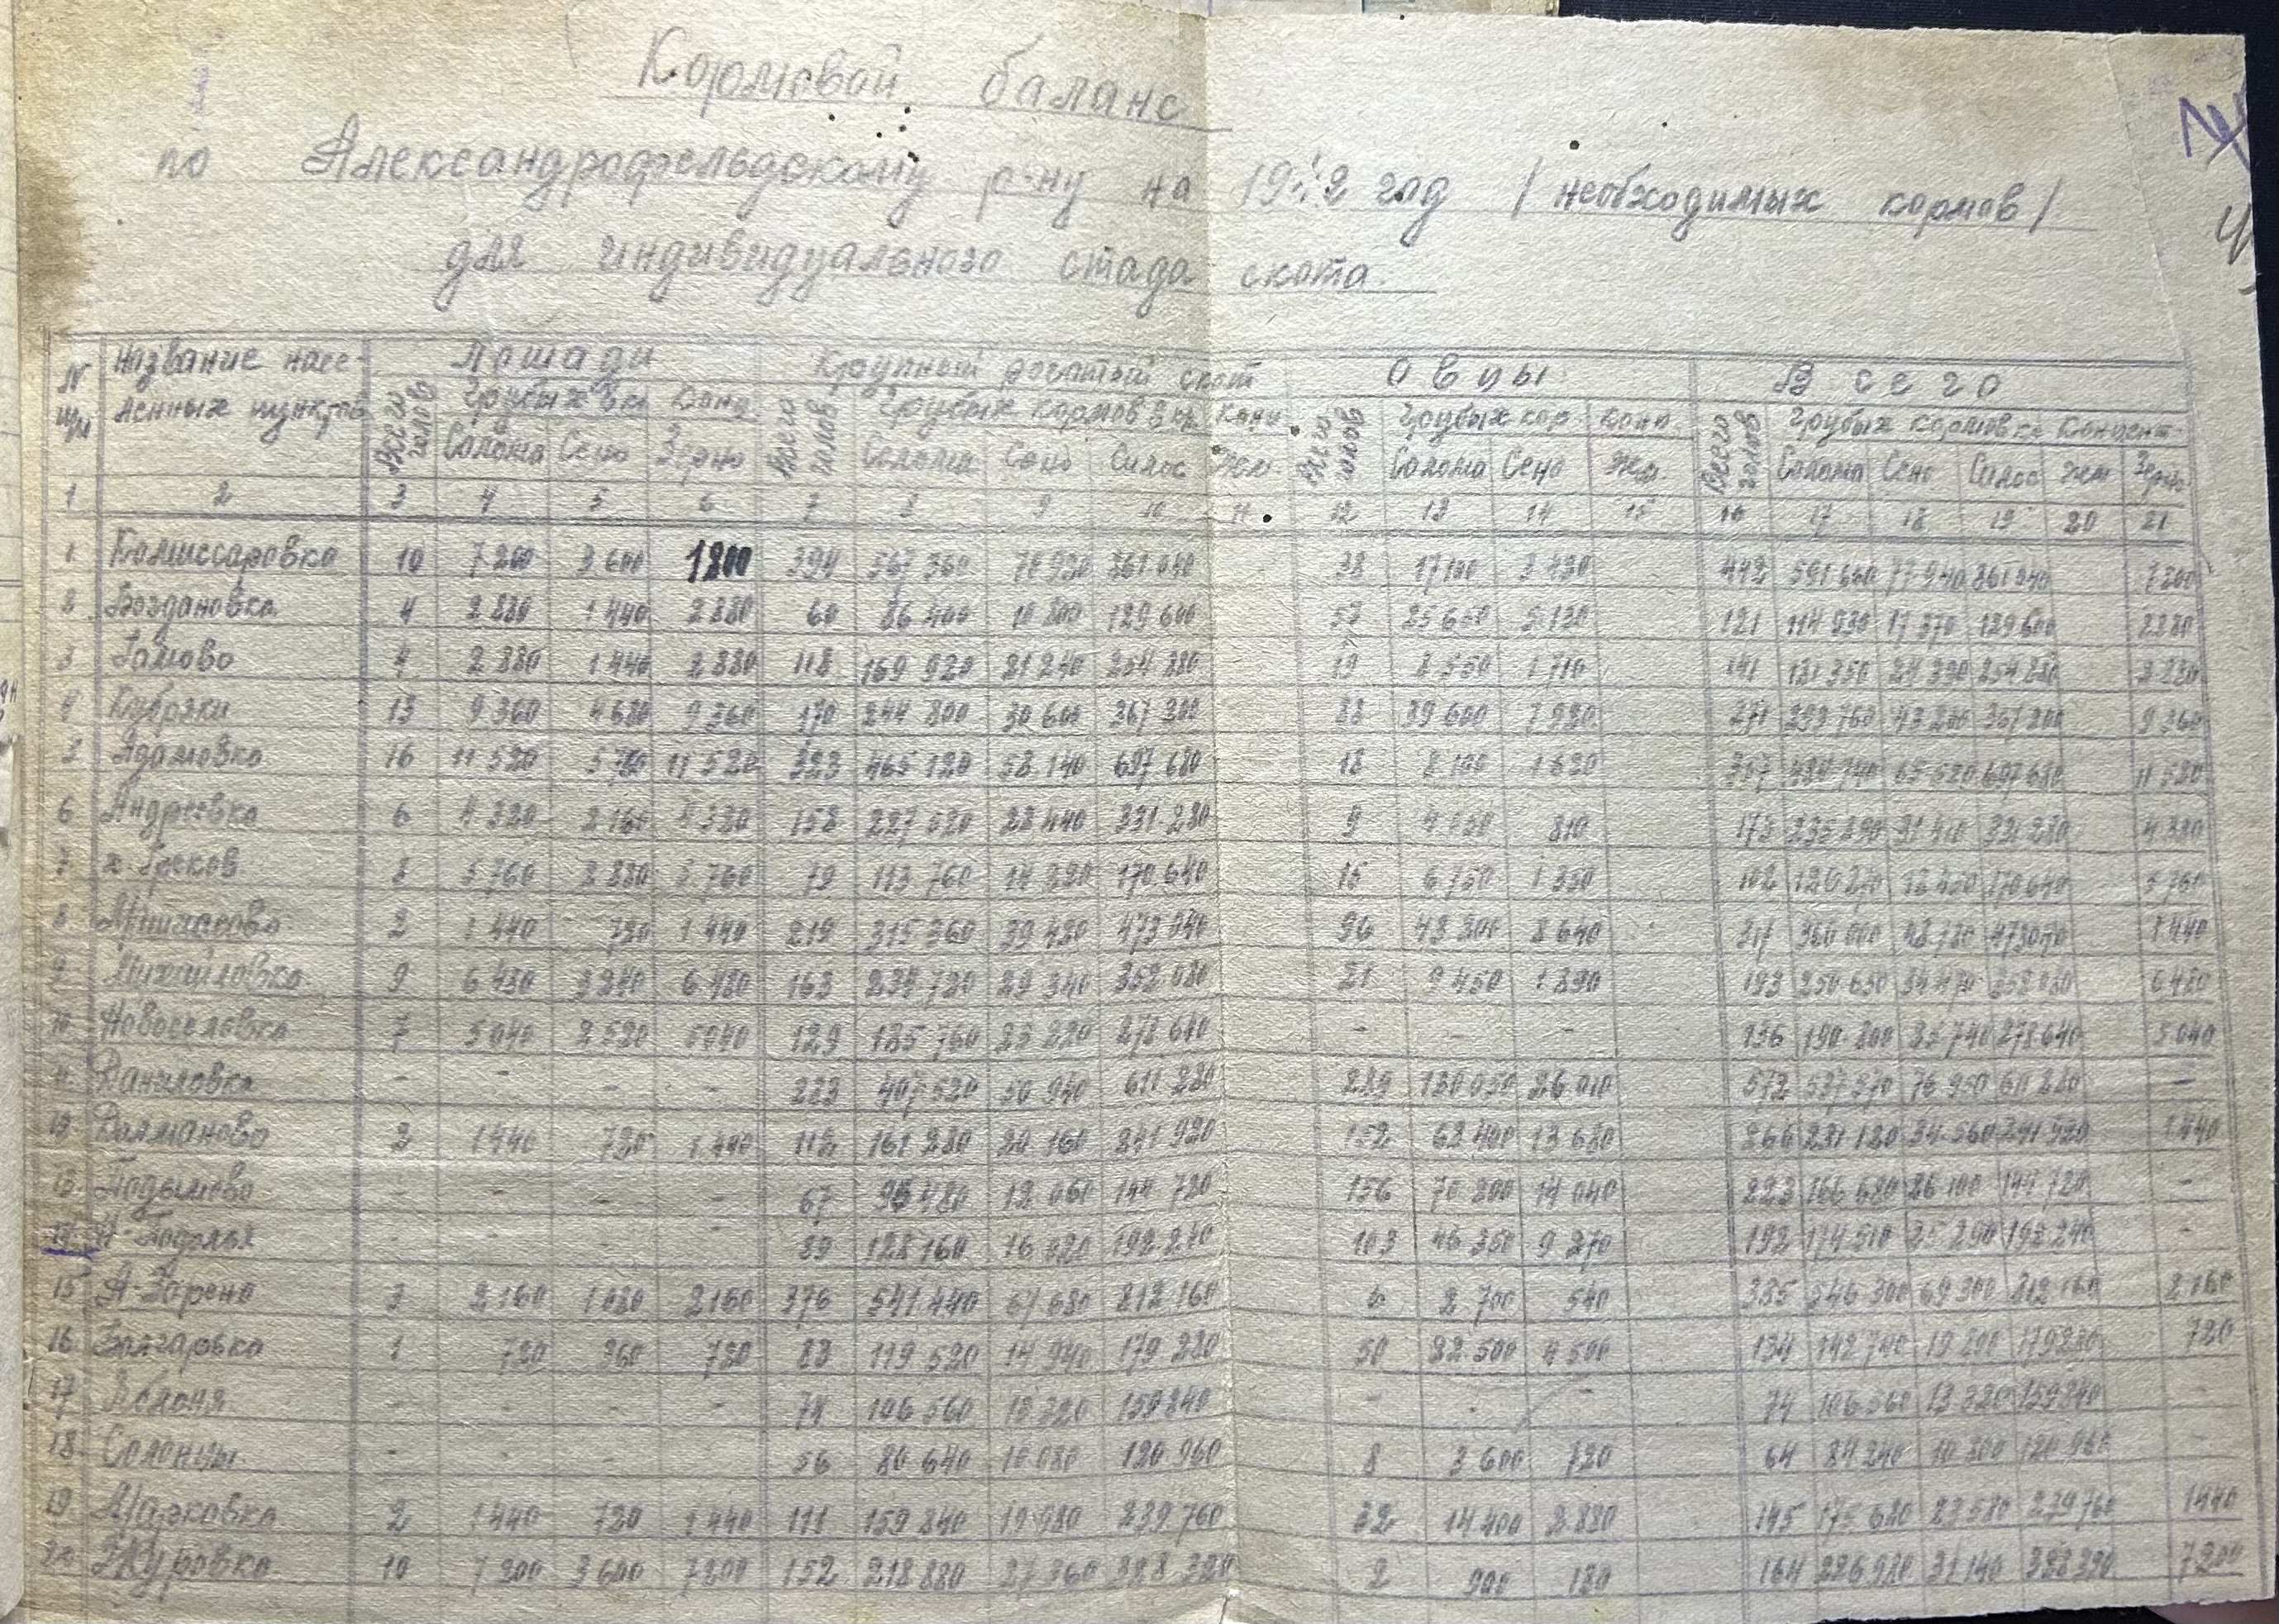 Кормовой баланс
по Александрофельдскому р-ну на 1942 год /необходимых кормов/
для индивидуального стада скота.
N п/п Название насе- Лошади Крупный рогатый скот Овцы Всего
ленных пунктов Всего голов Грубых Конц. Всего голов Грубых кормов Конц. Всего голов Грубых кор. конц. Всего голов Грубых кормов Концент.
Солома Сено Зерно Солома Сено Силос Жм. Солома Сено Жм. Солома Сено Силос Жм Зерно
1 2 3 4 5 6 7 8 9 10 11 12 13 14 15 16 17 18 19 20 21
1 Комиссаровка 10 7200 3600 394 567360 38 17100 3420 442 591660
2 Богдановка 4 2880 1440 2880 60 86400 10800 129600 57 25650 5130 121 114930 17370 129600 2880
3 Гамово 4 2880 1440 2880 118 169920 21240 254880 19 8550 1710 141 181350 24390 254880 2880
4 13 9360 4680 9360 170 244800 30600 367200 88 39600 7920 271 293760 43200 367200 9360
5 Адамовка 16 11520 11520 323 465120 58140 697680 18 8100 1620 357 697680 11520
6 Андреевка 6 4320 2160 4320 158 227520 28440 9 4050 810 173 4320
7 х. Греков 8 5760 2880 5760 79 113760 14220 170640 15 6750 1350 102 170640 5760
8 2 1440 720 1440 219 315360 39420 473040 96 43200 8640 317 360000 48780 1440
9 Михайловка 9 6480 3240 6480 163 234720 29340 352080 21 9450 1890 193 250650 34470 352080 6480
10 Новоселовка 7 5040 2520 5040 129 185760 23220 278640 - - - 136 190800 278640 5040
11 Даниловка - - - - 283 407520 50940 611280 289 130050 26010 572 537570 76950 -
12 2 1440 720 1440 112 161280 20160 241920 152 68400 13680 266 231120 34560 241920 1440
13 Подымово - - - - 67 96480 12060 144720 156 70200 14040 223 166680 26100 144720 -
14 Н-Подолья - - - - 89 128160 16020 192240 103 46350 9270 192 174510 25290 192240 -
15 3 2160 1080 2160 376 541440 67680 812160 6 2700 540 385 546300 69300 812160 2160
16 Болгаровка 1 720 360 720 83 119520 14940 179280 50 22500 4500 134 142740 179280 720
17 - - - - 74 106560 13320 159840 - - - 74 106560 13320 159840 -
18 Солонцы - - - - 56 80640 10080 120960 8 3600 720 64 84240 10800 120960 -
19 2 1440 720 1440 111 159840 19980 239760 32 14400 2880 145 175680 23580 239760 1440
20 Журовка 10 7200 3600 7200 152 218880 27360 328320 2 900 180 164 226980 31140 328320 7200